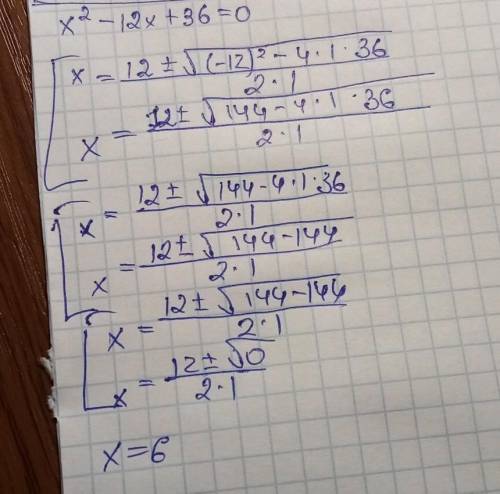 x² - 12x + 36 = 0
x = (12 ± √((-12)² - 4·1·36)) / (2·1)
x = (12 ± √(144 - 4·1·36)) / (2·1)
x = (12 ± √(144 - 4·1·36)) / (2·1)
x = (12 ± √(144 - 144)) / (2·1)
x = (12 ± √(144 - 144)) / (2·1)
x = (12 ± √0) / (2·1)
x = 6